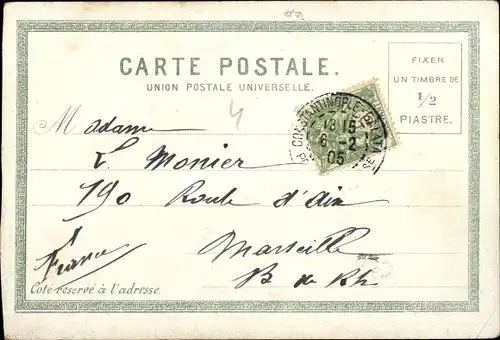 CARTE POSTALE.
UNION POSTALE UNIVERSELLE.
FIXER
UN TIMBRE DE
1/2
PIASTRE.
4
CONSTANTINOPLE-GALATA
18 15
6 -2
05
Madame
L. Monier
190 Route d'Aix
Marseille
B de Rh
France
Coté réservé à l'adresse.